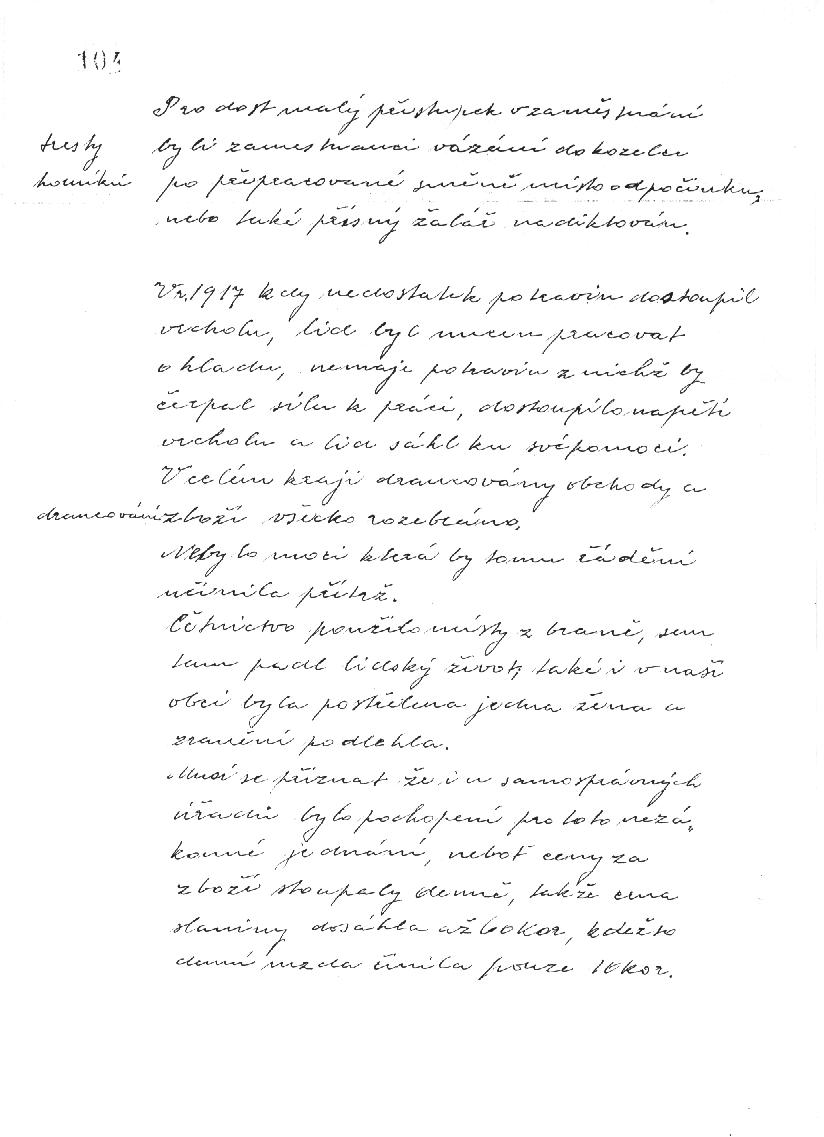 104
Pro dost malý přestupek v zaměstnání
tresty
byli zamestnanci vázáni do kozelce
horníků
po přepracované směně místo odpočinku,
nebo také přísný žalář nadiktován.
V r. 1917 kdy nedostatek potravin dostoupil
vrcholu, lid byl nucen pracovat
o hladu, nemaje potravin z nichž by
čerpal sílu k práci, dostoupilo napětí
vrcholu a lid sáhl ku svépomoci.
V celém kraji drancovány obchody a
drancování
zboží všecko rozebráno,
Nebylo moci která by tomu řádění
učinila přítrž.
Četnictvo použilo místy z braně, sem
tam padl lidský život, také i v naší
obci byla postřelena jedna žena a
zranění podlehla.
Musí se přiznat že i u samosprávných
úřadů bylo pochopení pro toto nezá„
konné jednání, neboť ceny za
zboží stoupaly denně, takže cena
slaniny dosáhla až 60 Kor, kdežto
denní mzda činila pouze 10 kor.